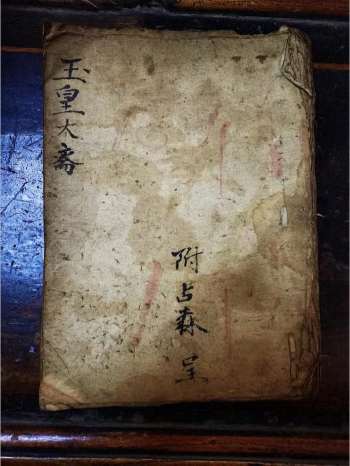 玉皇大斋
附占森呈